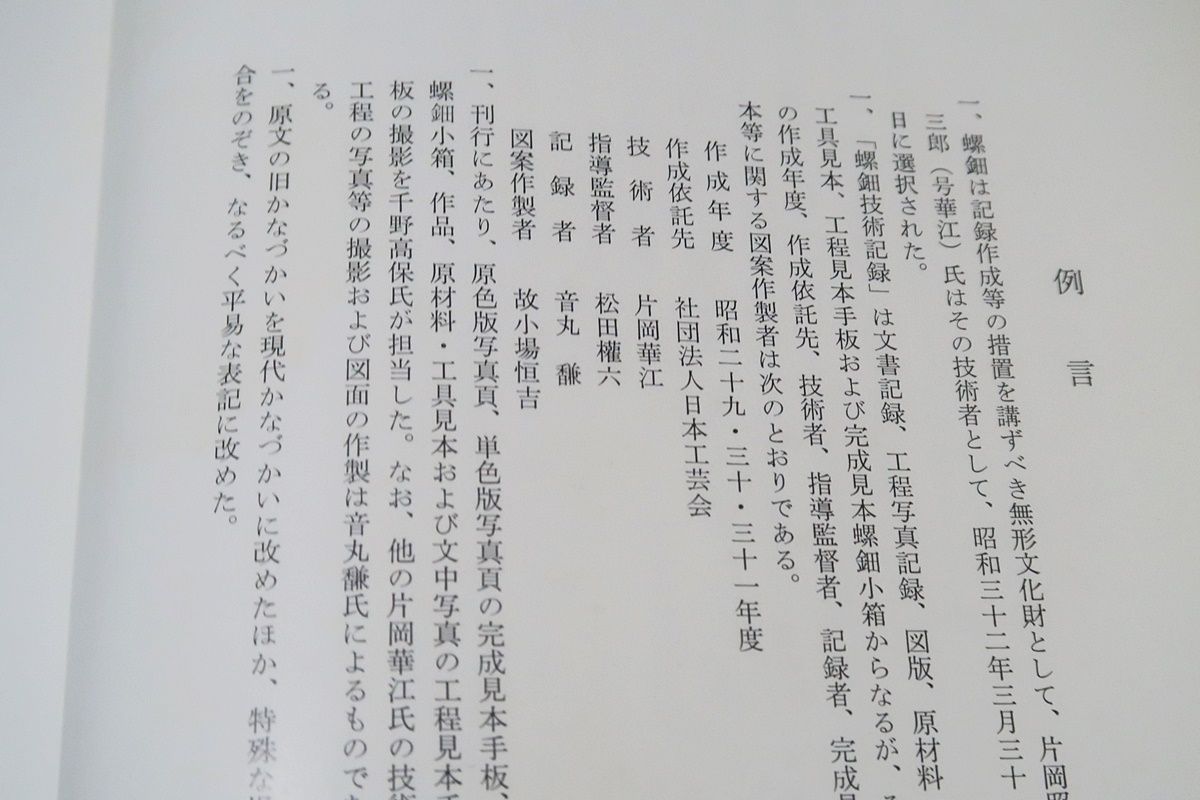 例言
一、螺鈿は記録作成等の措置を講ずべき無形文化財として、片岡照
三郎（号華江）氏はその技術者として、昭和三十二年三月三十
日に選択された。
一、「螺鈿技術記録」は文書記録、工程写真記録、図版、原材料
工具見本、工程見本手板および完成見本螺鈿小箱からなるが、そ
の作成年度、作成依託先、技術者、指導監督者、記録者、完成見
本等に関する図案作製者は次のとおりである。
作成年度 昭和二十九・三十・三十一年度
作成依託先 社団法人日本工芸会
技術者 片岡華江
指導監督者 松田權六
記録者 音丸馦
図案作製者 故小場恒吉
一、刊行にあたり、原色版写真頁、単色版写真頁の完成見本手板、
螺鈿小箱、作品、原材料・工具見本および文中写真の工程見本手
板の撮影を千野高保氏が担当した。なお、他の片岡華江氏の技術
工程の写真等の撮影および図面の作製は音丸馦氏によるものであ
る。
一、原文の旧かなづかいを現代かなづかいに改めたほか、特殊な場
合をのぞき、なるべく平易な表記に改めた。